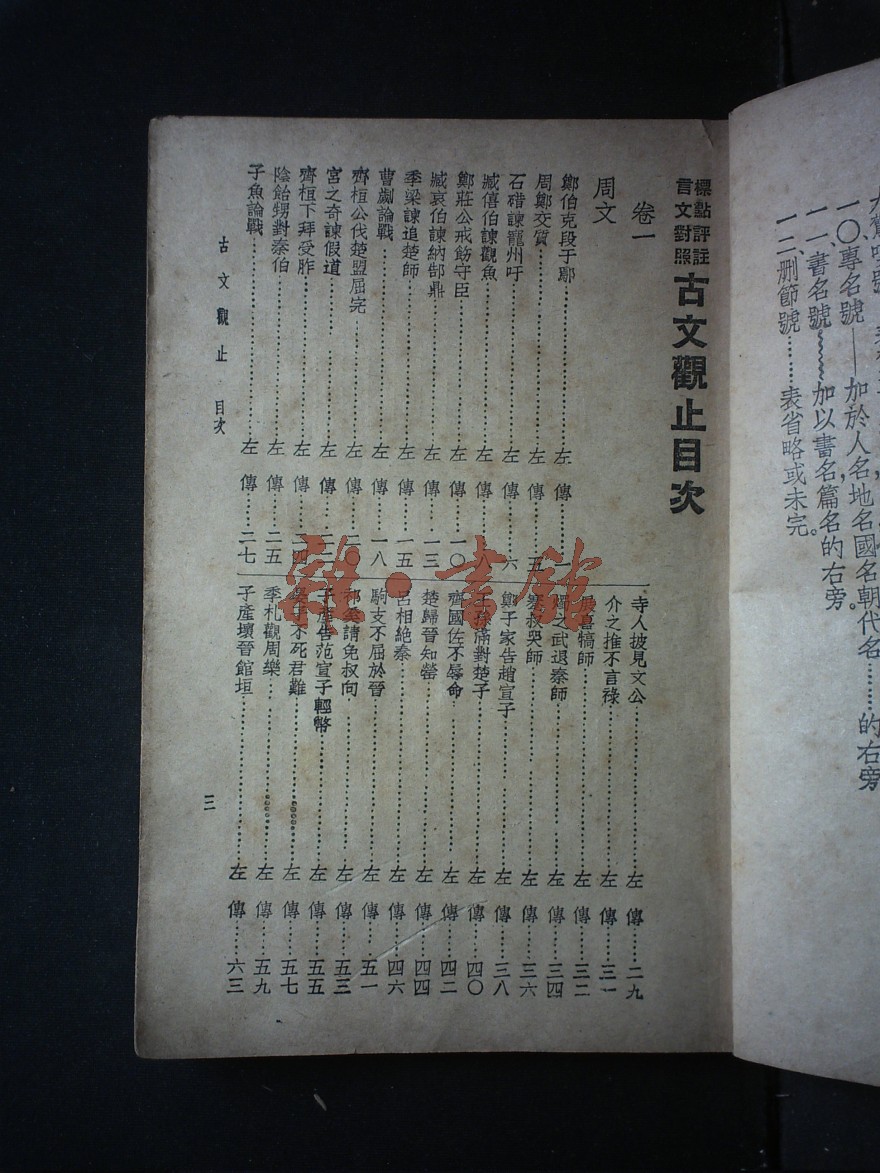 一〇、專名號——加於人名地名國名朝代名………的右旁。
一一、書名號﹏﹏加以書名篇名的右旁。
一二、刪節號……表省略或未完。
標點評註
言文對照
古文觀止目次
卷一
周文
鄭伯克段于鄢……左傳……一
周鄭交質……左傳……五
石碏諫寵州吁……左傳……六
臧僖伯諫觀魚……左傳……八
鄭莊公戒飭守臣……左傳……一〇
臧哀伯諫納郜鼎……左傳……一三
季梁諫追楚師……左傳……一五
曹劌論戰……左傳……一八
齊桓公伐楚盟屈完……左傳……二〇
宮之奇諫假道……左傳……二二
齊桓下拜受胙……左傳……二四
陰飴甥對秦伯……左傳……二五
子魚論戰……左傳……二七
寺人披見文公……左傳……二九
介之推不言祿……左傳……三一
展喜犒師……左傳……三二
燭之武退秦師……左傳……三四
蹇叔哭師……左傳……三六
鄭子家告趙宣子……左傳……三八
王孫滿對楚子……左傳……四〇
齊國佐不辱命……左傳……四二
楚歸晉知罃……左傳……四四
呂相絕秦……左傳……四六
駒支不屈於晉……左傳……五一
祁奚請免叔向……左傳……五三
子產告范宣子輕幣……左傳……五五
晏子不死君難……左傳……五七
季札觀周樂……左傳……五九
子產壞晉館垣……左傳……六三
古文觀止 目次
三
雜·書館